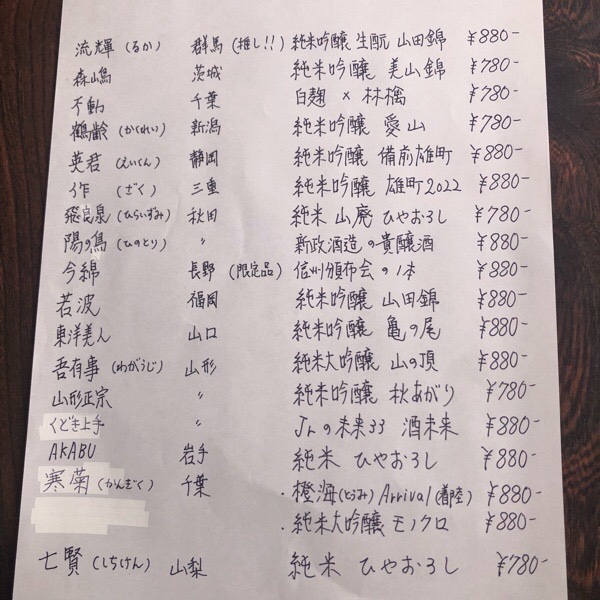 流輝 (るか) 群馬 (推し!!) 純米吟醸 生酛 山田錦 ¥880-
森嶋 茨城 純米吟醸 美山錦 ¥780-
不動 千葉 白麹 × 林檎 ¥780-
鶴齢 (かくれい) 新潟 純米吟醸 愛山 ¥780-
英君 (えいくん) 静岡 純米吟醸 備前雄町 ¥880-
作 (ざく) 三重 純米吟醸 雄町2022 ¥880-
飛良泉 (ひらいずみ) 秋田 純米 山廃 ひやおろし ¥780-
陽の鳥 (ひのとり) 〃 新政酒造の貴醸酒 ¥880-
今錦 長野 (限定品) 信州頒布会の1本 ¥880-
若波 福岡 純米吟醸 山田錦 ¥880-
東洋美人 山口 純米吟醸 亀の尾 ¥880-
吾有事 (わがうじ) 山形 純米大吟醸 山の頂 ¥880-
山形正宗 〃 純米吟醸 秋あがり ¥780-
くどき上手 〃 Jrの未来33 酒未来 ¥880-
AKABU 岩手 純米 ひやおろし ¥880-
寒菊 (かんぎく) 千葉 ・橙海(とうみ) Arrival (着陸) ¥880-
・純米大吟醸 モノクロ ¥880-
七賢 (しちけん) 山梨 純米 ひやおろし ¥780-